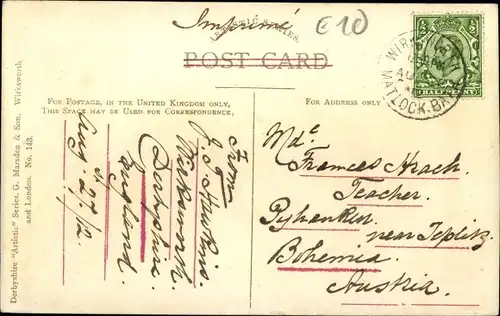 Imprimé
ARTISTIC SERIES.
£10
POST CARD
FOR POSTAGE, IN THE UNITED KINGDOM ONLY,
THIS SPACE MAY BE USED FOR CORRESPONDENCE,
FOR ADDRESS ONLY
HALFPENNY
MATLOCK.BA
From
Wirksworth
Derbyshire
England
Aug. 27/12
Derbyshire "Artistic" Series, G. Marsden & Son, Wirksworth
and London. No. 143.
Teacher
near Teplitz
Bohemia
Austria.